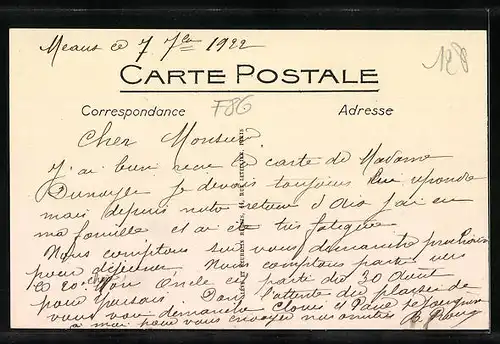 Meaux ce 7 7bre 1922
128
CARTE POSTALE
Correspondance F86 Adresse
Cher Monsieur,
J'ai bien reçu la carte de Madame
je devais toujours lui repondre
mais depuis notre retour d' j'ai eu
ma famille et ai été très fatiguée
Nous comptons sur vous dimanche prochain
pour déjeuner, Nous comptons partir vers
le 20. chez mon Oncle est parti du 30 Aout
pour Dans l'attente du plaisir de
vous voir dimanche Clovis et
a moi pour vous envoyer nos amitiés